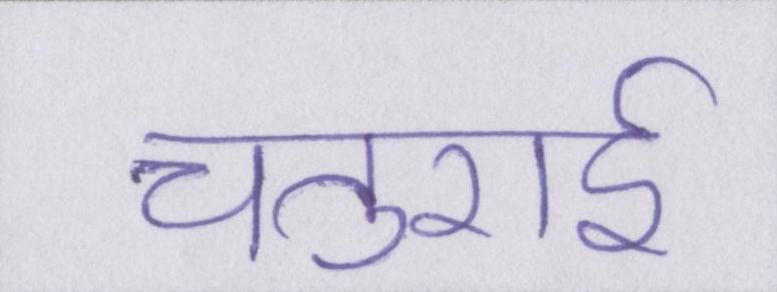 चतुराई